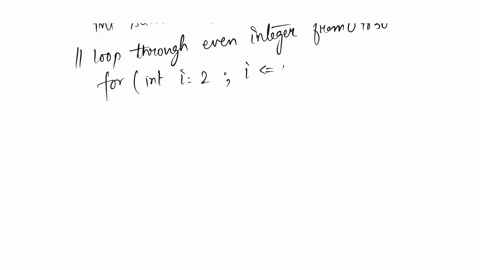 int
// loop through even integer from 0 to 30
for ( int i = 2 ; i <=